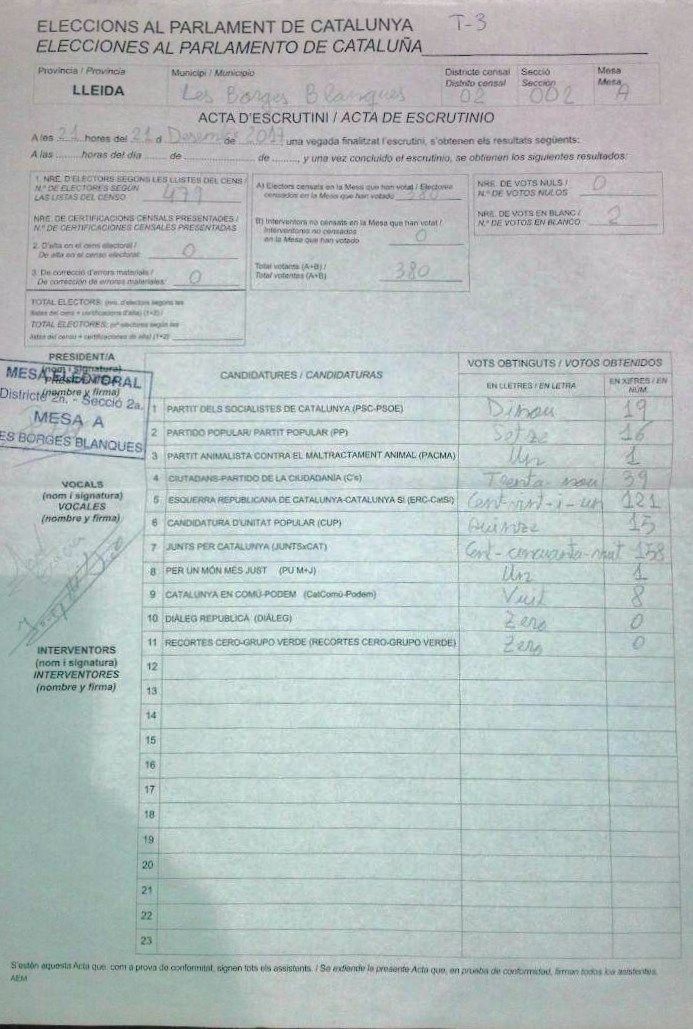 ELECCIONS AL PARLAMENT DE CATALUNYA T-3
ELECCIONES AL PARLAMENTO DE CATALUÑA
Província / Provincia Municipi / Municipio Districte censal Secció Mesa
Distrito censal Sección Mesa
LLEIDA Les Borges Blanques 02 002 A
ACTA D'ESCRUTINI / ACTA DE ESCRUTINIO
A les 21 hores del 21 d Desembre de 2017 una vegada finalitzat l'escrutini, s'obtenen els resultats següents:
A las ........ horas del día ...... de ................ de ........, y una vez concluido el escrutinio, se obtienen los siguientes resultados:
1. NRE. D'ELECTORS SEGONS LES LLISTES DEL CENS /
N.º DE ELECTORES SEGÚN
LAS LISTAS DEL CENSO 479
NRE. DE CERTIFICACIONS CENSALS PRESENTADES /
N.º DE CERTIFICACIONES CENSALES PRESENTADAS
2. D'alta en el cens electoral /
De alta en el censo electoral: 0
3. De correcció d'errors materials /
De corrección de errores materiales: 0
TOTAL ELECTORS: (nre. d'electors segons les
llistes del cens + certificacions d'alta) (1+2) /
TOTAL ELECTORES: (nº electores según las
listas del censo + certificaciones de alta) (1+2)
A) Electors censats en la Mesa que han votat / Electores
censados en la Mesa que han votado 380
B) Interventors no censats en la Mesa que han votat /
Interventores no censados
en la Mesa que han votado 0
Total votants (A+B) /
Total votantes (A+B) 380
NRE. DE VOTS NULS /
N.º DE VOTOS NULOS 0
NRE. DE VOTS EN BLANC /
N.º DE VOTOS EN BLANCO 2
PRESIDENT/A
(nom i signatura)
PRESIDENTE/A
(nombre y firma)
MESA ELECTORAL
Districte 2n. - Secció 2a.
MESA A
ES BORGES BLANQUES
VOCALS
(nom i signatura)
VOCALES
(nombre y firma)
INTERVENTORS
(nom i signatura)
INTERVENTORES
(nombre y firma)
CANDIDATURES / CANDIDATURAS VOTS OBTINGUTS / VOTOS OBTENIDOS
EN LLETRES / EN LETRA EN XIFRES / EN NÚM.
1 PARTIT DELS SOCIALISTES DE CATALUNYA (PSC-PSOE) Dinou 19
2 PARTIDO POPULAR/ PARTIT POPULAR (PP) Setze 16
3 PARTIT ANIMALISTA CONTRA EL MALTRACTAMENT ANIMAL (PACMA) Un 1
4 CIUTADANS-PARTIDO DE LA CIUDADANÍA (C's) Trenta-nou 39
5 ESQUERRA REPUBLICANA DE CATALUNYA-CATALUNYA SÍ (ERC-CatSí) Cent-vint-i-un 121
6 CANDIDATURA D'UNITAT POPULAR (CUP) Quinze 15
7 JUNTS PER CATALUNYA (JUNTSxCAT) Cent-cincuanta-vuit 158
8 PER UN MÓN MÉS JUST (PU M+J) Un 1
9 CATALUNYA EN COMÚ-PODEM (CatComú-Podem) Vuit 8
10 DIÀLEG REPUBLICÀ (DIÀLEG) Zero 0
11 RECORTES CERO-GRUPO VERDE (RECORTES CERO-GRUPO VERDE) Zero 0
12
13
14
15
16
17
18
19
20
21
22
23
S'estén aquesta Acta que, com a prova de conformitat, signen tots els assistents. / Se extiende la presente Acta que, en prueba de conformidad, firman todos los asistentes.
AEM